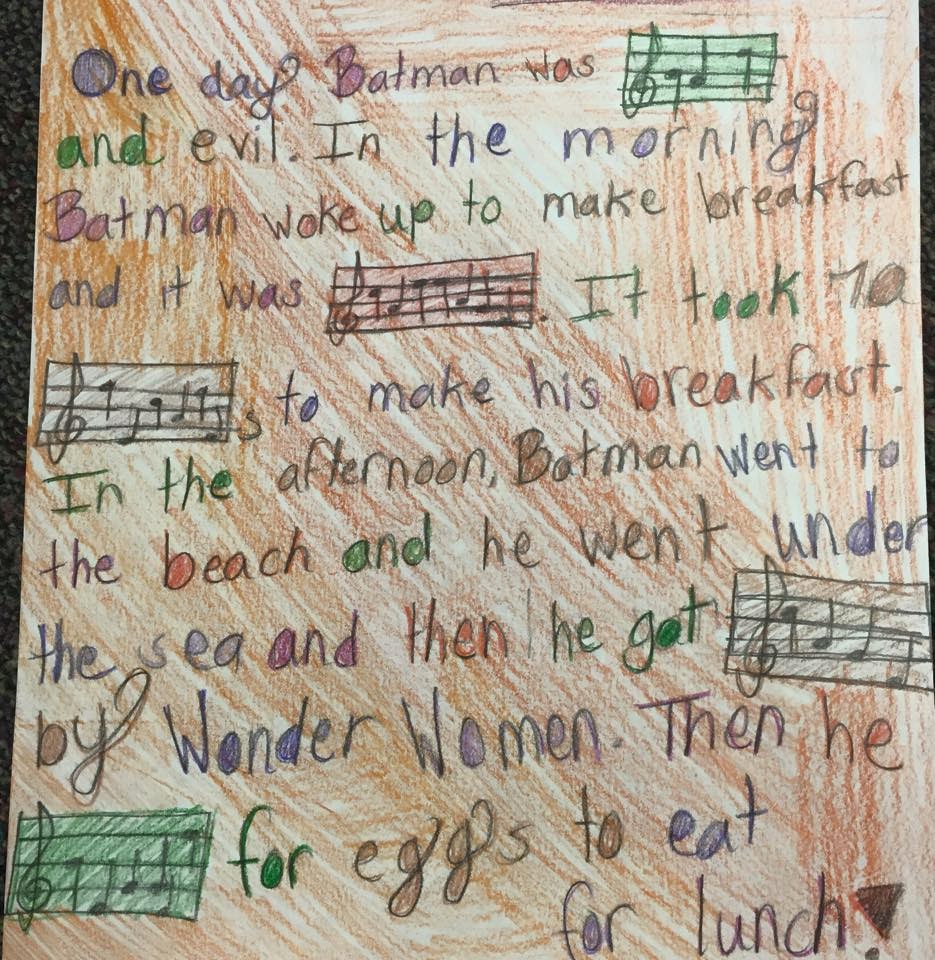 One day Batman was
and evil. In the morning
Batman woke up to make breakfast
and it was . It took 70
s to make his breakfast.
In the afternoon, Batman went to
the beach and he went under
the sea and then he got
by Wonder Women. Then he
for eggs to eat
for lunch!